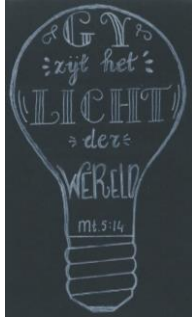 GY
zijt het
LICHT
der
WERELD
Mt. 5:14